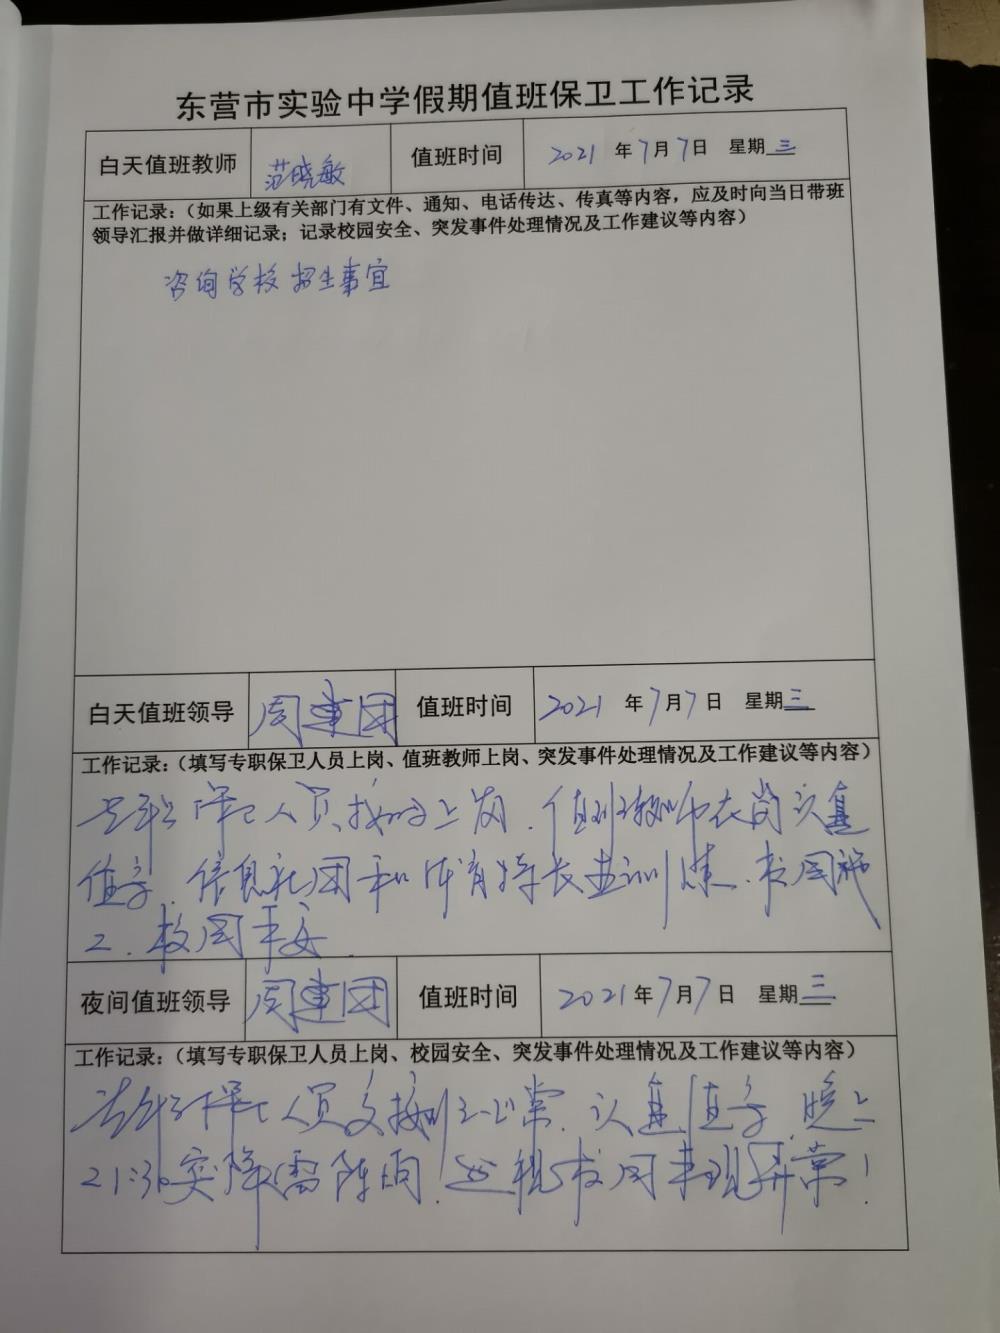 东营市实验中学假期值班保卫工作记录
白天值班教师 范晓敏 值班时间 2021 年 7月 7日 星期三
工作记录：（如果上级有关部门有文件、通知、电话传达、传真等内容，应及时向当日带班
领导汇报并做详细记录；记录校园安全、突发事件处理情况及工作建议等内容）
咨询学校招生事宜
白天值班领导 周建团 值班时间 2021 年 7月 7日 星期三
工作记录：（填写专职保卫人员上岗、值班教师上岗、突发事件处理情况及工作建议等内容）
专职保卫人员按时上岗.值班教师在岗认真
值守.信息社团和体育特长生训练.校园施
工.校园平安.
夜间值班领导 周建团 值班时间 2021年 7月 7日 星期三
工作记录：（填写专职保卫人员上岗、校园安全、突发事件处理情况及工作建议等内容）
专职保卫人员交接班正常.认真值守.晚上
21:30突降雷阵雨!巡视校园未现异常!